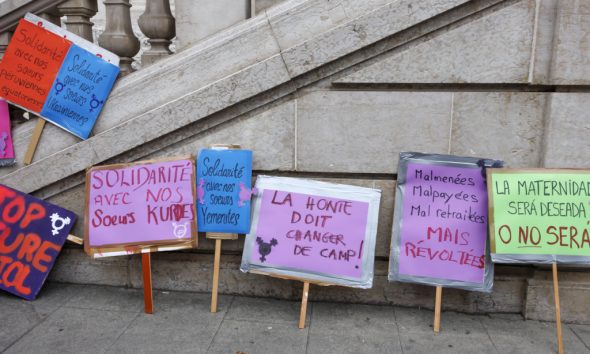 Solidarité
avec nos
soeurs
péruviennes
Solidarité
avec nos
soeurs
TOP
SOLIDARITÉ
AVEC NOS
Soeurs KURDES
Solidarité
avec nos
soeurs
LA HONTE
DOIT
CHANGER
DE CAMP!
Malmenées
Malpayées
Mal retraitées
MAIS
RÉVOLTÉES
LA MATERNIDA
SERÁ DESEADA
O NO SERÁ